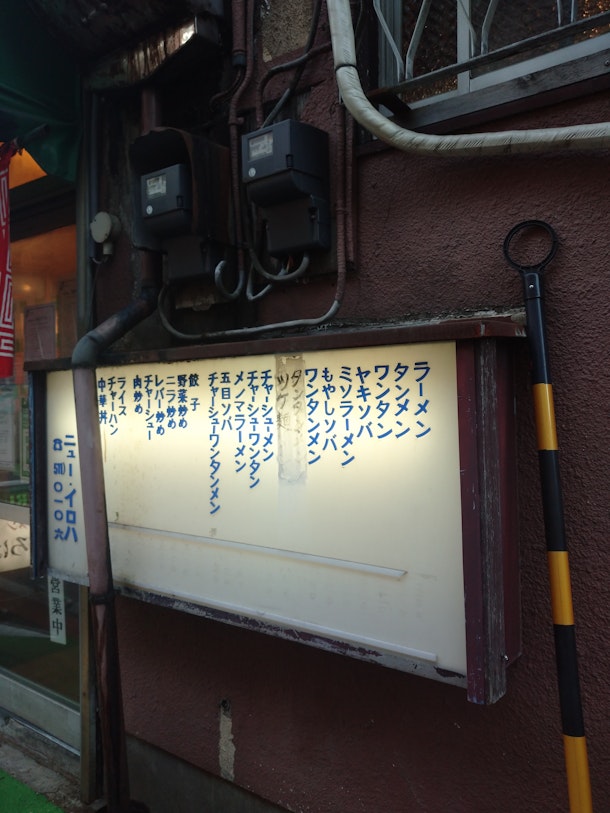 ラーメン
タンメン
ワンタン
ヤキソバ
ミソラーメン
もやしソバ
ワンタンメン
ツケ麺
チャーシューメン
チャーシューワンタン
メンマラーメン
五目ソバ
チャーシューワンタンメン
餃子
野菜炒め
ニラ炒め
レバー炒め
チャーシュー
肉炒め
ライス
チャーハン
中華丼
ニュー・イロハ
営業中